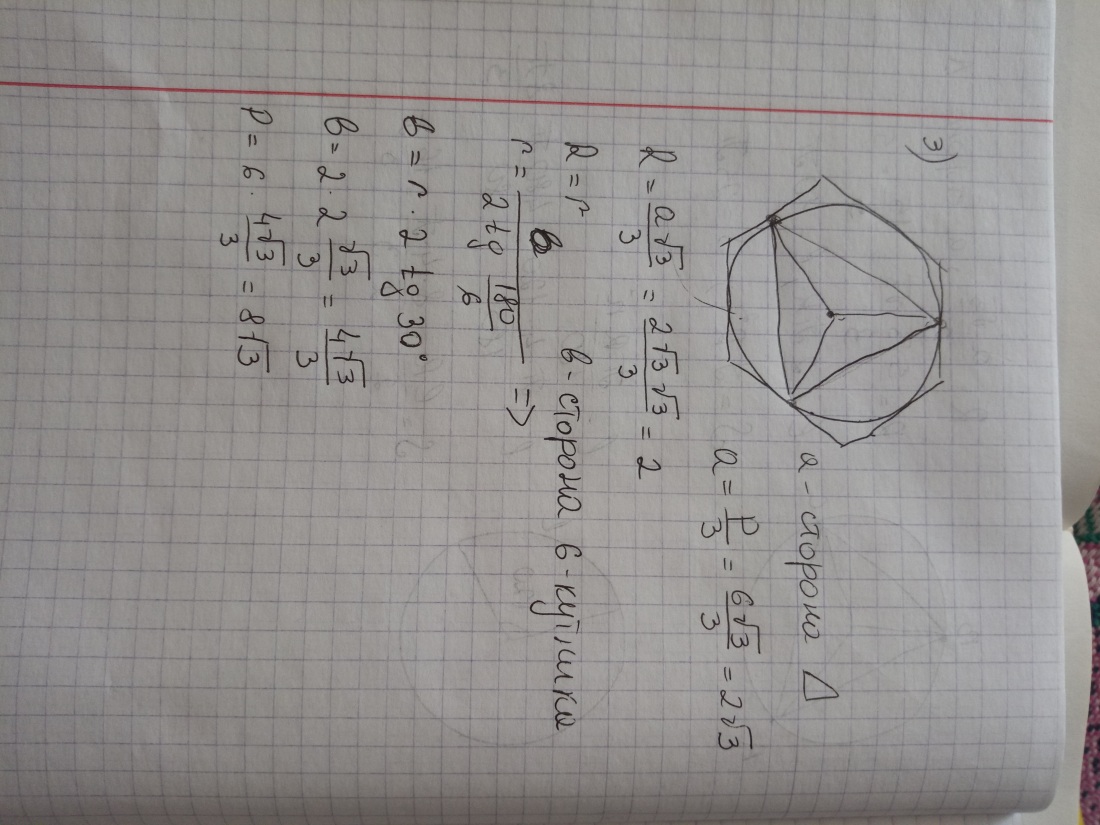 3)
a - сторона △
a = P/3 = 6√3/3 = 2√3
R = a√3/3 = 2√3√3/3 = 2
R = r b - сторона 6-кутника
r = b/(2 tg 180/6) =>
b = r · 2 tg 30°
b = 2 · 2 √3/3 = 4√3/3
P = 6 · 4√3/3 = 8√3